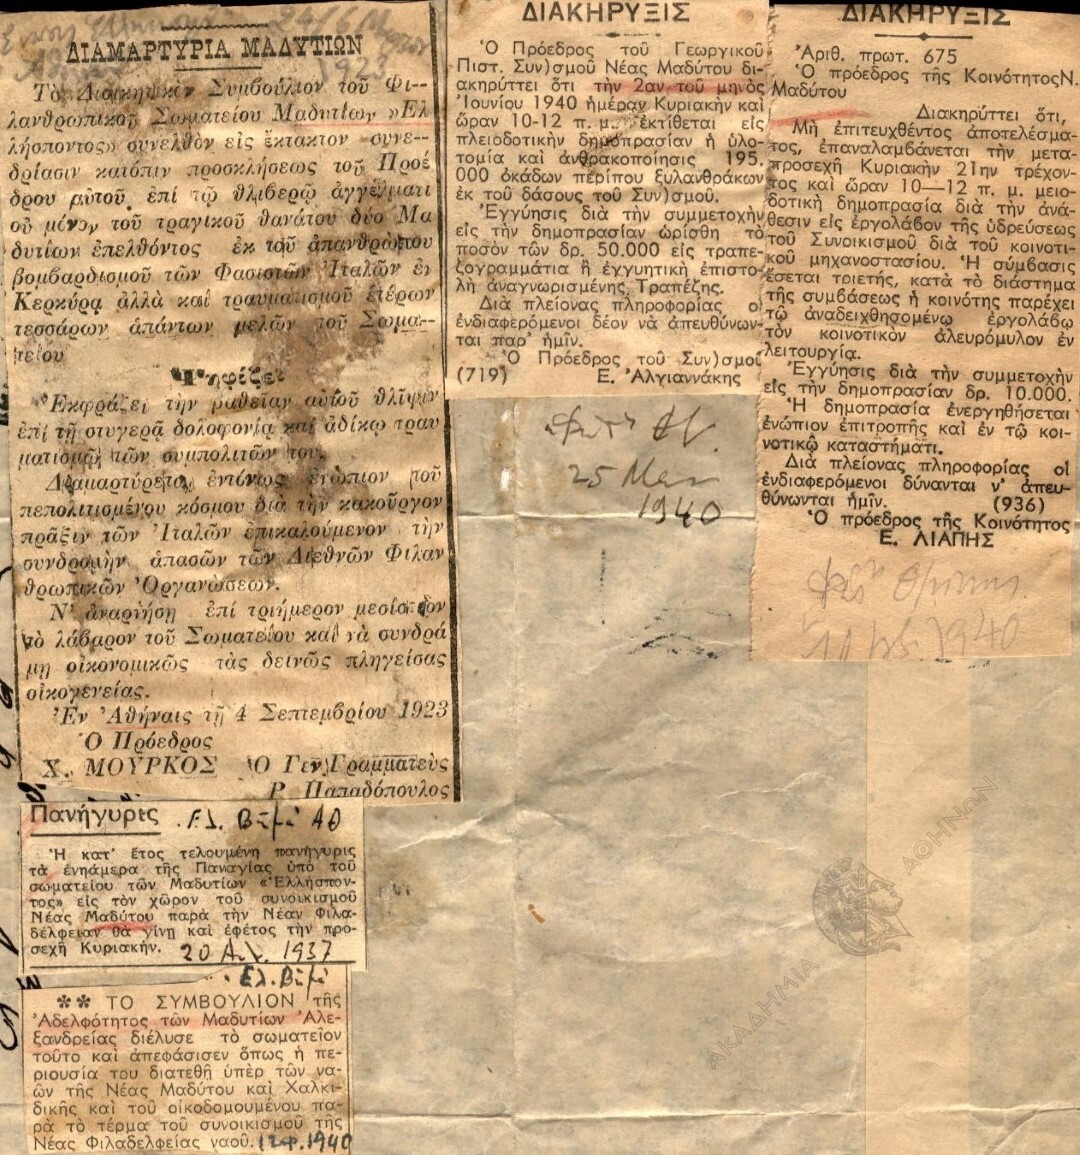 24/6
1923
ΔΙΑΜΑΡΤΥΡΙΑ ΜΑΔΥΤΙΩΝ
Τὸ Διοικητικὸν Συμβούλιον τοῦ Φι-
λανθρωπικοῦ Σωματείου Μαδυτίων «Ἑλ
λήσποντος» συνελθὸν εἰς ἔκτακτον συνε-
δρίασιν κατόπιν προσκλήσεως τοῦ Προέ
δρου αὐτοῦ, ἐπὶ τῷ θλιβερῷ ἀγγέλματι
οὐ μόνον τοῦ τραγικοῦ θανάτου δύο Μα
δυτίων ἐπελθόντος ἐκ τοῦ ἀπανθρώπου
βομβαρδισμοῦ τῶν Φασιστῶν Ἰταλῶν ἐν
Κερκύρᾳ ἀλλὰ καὶ τραυματισμοῦ ἑτέρων
τεσσάρων ἁπάντων μελῶν τοῦ Σωμα-
τείου
Ψηφίζει
Ἐκφράζει τὴν βαθεῖαν αὑτοῦ θλῖψιν
ἐπὶ τῇ στυγερᾷ δολοφονίᾳ καὶ ἀδίκῳ τραυ
ματισμῷ τῶν συμπολιτῶν του.
Διαμαρτύρεται ἐντόνως ἐνώπιον τοῦ
πεπολιτισμένου κόσμου διὰ τὴν κακοῦργον
πρᾶξιν τῶν Ἰταλῶν ἐπικαλούμενον τὴν
συνδρομὴν ἁπασῶν τῶν Διεθνῶν Φιλαν
θρωπικῶν Ὀργανώσεων.
Ν' ἀναρτήσῃ ἐπὶ τριήμερον μεσίστιον
τὸ λάβαρον τοῦ Σωματείου καὶ νὰ συνδρά
μῃ οἰκονομικῶς τὰς δεινῶς πληγείσας
οἰκογενείας.
Ἐν Ἀθήναις τῇ 4 Σεπτεμβρίου 1923
Ὁ Πρόεδρος
Χ. ΜΟΥΡΚΟΣ Ὁ Γεν. Γραμματεὺς
Ρ. Παπαδόπουλος
Πανήγυρις Ελ. Βῆμα Αθ
Ἡ κατ' ἔτος τελουμένη πανήγυρις
τὰ ἐνηάμερα τῆς Παναγίας ὑπὸ τοῦ
σωματείου τῶν Μαδυτίων «Ἑλλήσπον-
τος» εἰς τὸν χῶρον τοῦ συνοικισμοῦ
Νέας Μαδύτου παρὰ τὴν Νέαν Φιλα-
δέλφειαν θὰ γίνῃ καὶ ἐφέτος τὴν προ-
σεχῆ Κυριακήν. 20 Αυγ. 1937
Ελ. Βῆμα
** ΤΟ ΣΥΜΒΟΥΛΙΟΝ τῆς
Ἀδελφότητος τῶν Μαδυτίων Ἀλε-
ξανδρείας διέλυσε τὸ σωματεῖον
τοῦτο καὶ ἀπεφάσισεν ὅπως ἡ πε-
ριουσία του διατεθῇ ὑπὲρ τῶν να-
ῶν τῆς Νέας Μαδύτου καὶ Χαλκι-
δικῆς καὶ τοῦ οἰκοδομουμένου πα-
ρὰ τὸ τέρμα τοῦ συνοικισμοῦ τῆς
Νέας Φιλαδελφείας ναοῦ. 12 φ. 1940
ΔΙΑΚΗΡΥΞΙΣ
Ὁ Πρόεδρος τοῦ Γεωργικοῦ
Πιστ. Συν)σμοῦ Νέας Μαδύτου δι-
ακηρύττει ὅτι τὴν 2αν τοῦ μηνὸς
Ἰουνίου 1940 ἡμέραν Κυριακὴν καὶ
ὥραν 10-12 π. μ. ἐκτίθεται εἰς
πλειοδοτικὴν δημοπρασίαν ἡ ὑλο-
τομία καὶ ἀνθρακοποίησις 195.
000 ὀκάδων περίπου ξυλανθράκων
ἐκ τοῦ δάσους τοῦ Συν)σμοῦ.
Ἐγγύησις διὰ τὴν συμμετοχὴν
εἰς τὴν δημοπρασίαν ὡρίσθη τὸ
ποσὸν τῶν δρ. 50.000 εἰς τραπε-
ζογραμμάτια ἢ ἐγγυητικὴ ἐπιστο-
λὴ ἀναγνωρισμένης Τραπέζης.
Διὰ πλείονας πληροφορίας οἱ
ἐνδιαφερόμενοι δέον νὰ ἀπευθύνων-
ται παρ' ἡμῖν.
Ὁ Πρόεδρος τοῦ Συν)σμοῦ
(719) Ε. Ἀλγιαννάκης
25 Μαι
1940
ΔΙΑΚΗΡΥΞΙΣ
Ἀριθ. πρωτ. 675
Ὁ πρόεδρος τῆς Κοινότητος Ν.
Μαδύτου
Διακηρύττει ὅτι,
Μὴ ἐπιτευχθέντος ἀποτελέσμα-
τος, ἐπαναλαμβάνεται τὴν μετα-
προσεχῆ Κυριακὴν 21ην τρέχον-
τος καὶ ὥραν 10—12 π. μ. μειο-
δοτικὴ δημοπρασία διὰ τὴν ἀνά-
θεσιν εἰς ἐργολάβον τῆς ὑδρεύσεως
τοῦ Συνοικισμοῦ διὰ τοῦ κοινοτι-
κοῦ μηχανοστασίου. Ἡ σύμβασις
ἔσεται τριετής, κατὰ τὸ διάστημα
τῆς συμβάσεως ἡ κοινότης παρέχει
τῷ ἀναδειχθησομένῳ ἐργολάβῳ
τὸν κοινοτικὸν ἀλευρόμυλον ἐν
λειτουργίᾳ.
Ἐγγύησις διὰ τὴν συμμετοχὴν
εἰς τὴν δημοπρασίαν δρ. 10.000.
Ἡ δημοπρασία ἐνεργηθήσεται
ἐνώπιον ἐπιτροπῆς καὶ ἐν τῷ κοι-
νοτικῷ καταστήματι.
Διὰ πλείονας πληροφορίας οἱ
ἐνδιαφερόμενοι δύνανται ν' ἀπευ-
θύνωνται ἡμῖν. (936)
Ὁ πρόεδρος τῆς Κοινότητος
Ε. ΛΙΑΠΗΣ
1940
ΑΚΑΔΗΜΙΑ ΑΘΗΝΩΝ